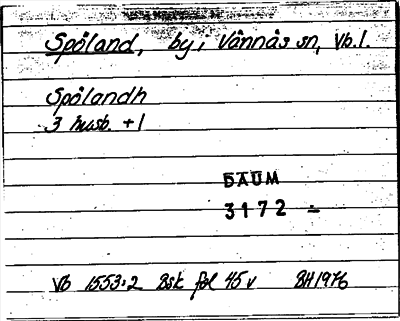 Spåland, by i Vännäs sn, Vb.l.
Spålandh
3 husb. + 1
DAUM
3172 =
Vb 1553:2 Bsk fol 45 v BH 1976